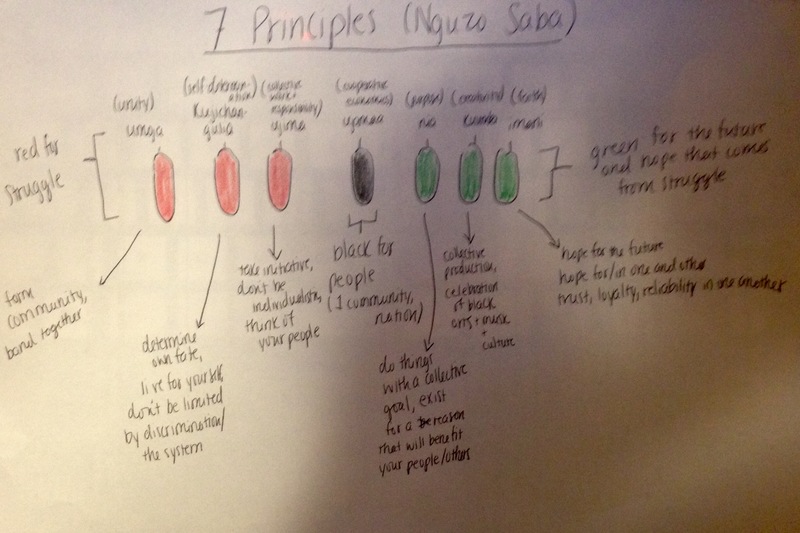 7 Principles (Nguzo Saba)
(unity)
umoja
(self determin-
ation)
Kujichan-
gulia
(collective
work +
responsibility)
ujima
(cooperative
economics)
ujamaa
(purpose)
nia
(creativity)
kuumba
(faith)
imani
red for
struggle
green for the future
and hope that comes
from struggle
form
community,
band together
determine
own fate,
live for yourself,
don't be limited
by discrimination/
the system
take initiative,
don't be
individualistic,
think of
your people
black for
people
(1 community,
nation)
do things
with a collective
goal, exist
for a reason
that will benefit
your people/others
collective
production,
celebration
of black
arts + music
+
culture
hope for the future
hope for/in one and other
trust, loyalty, reliability in one another